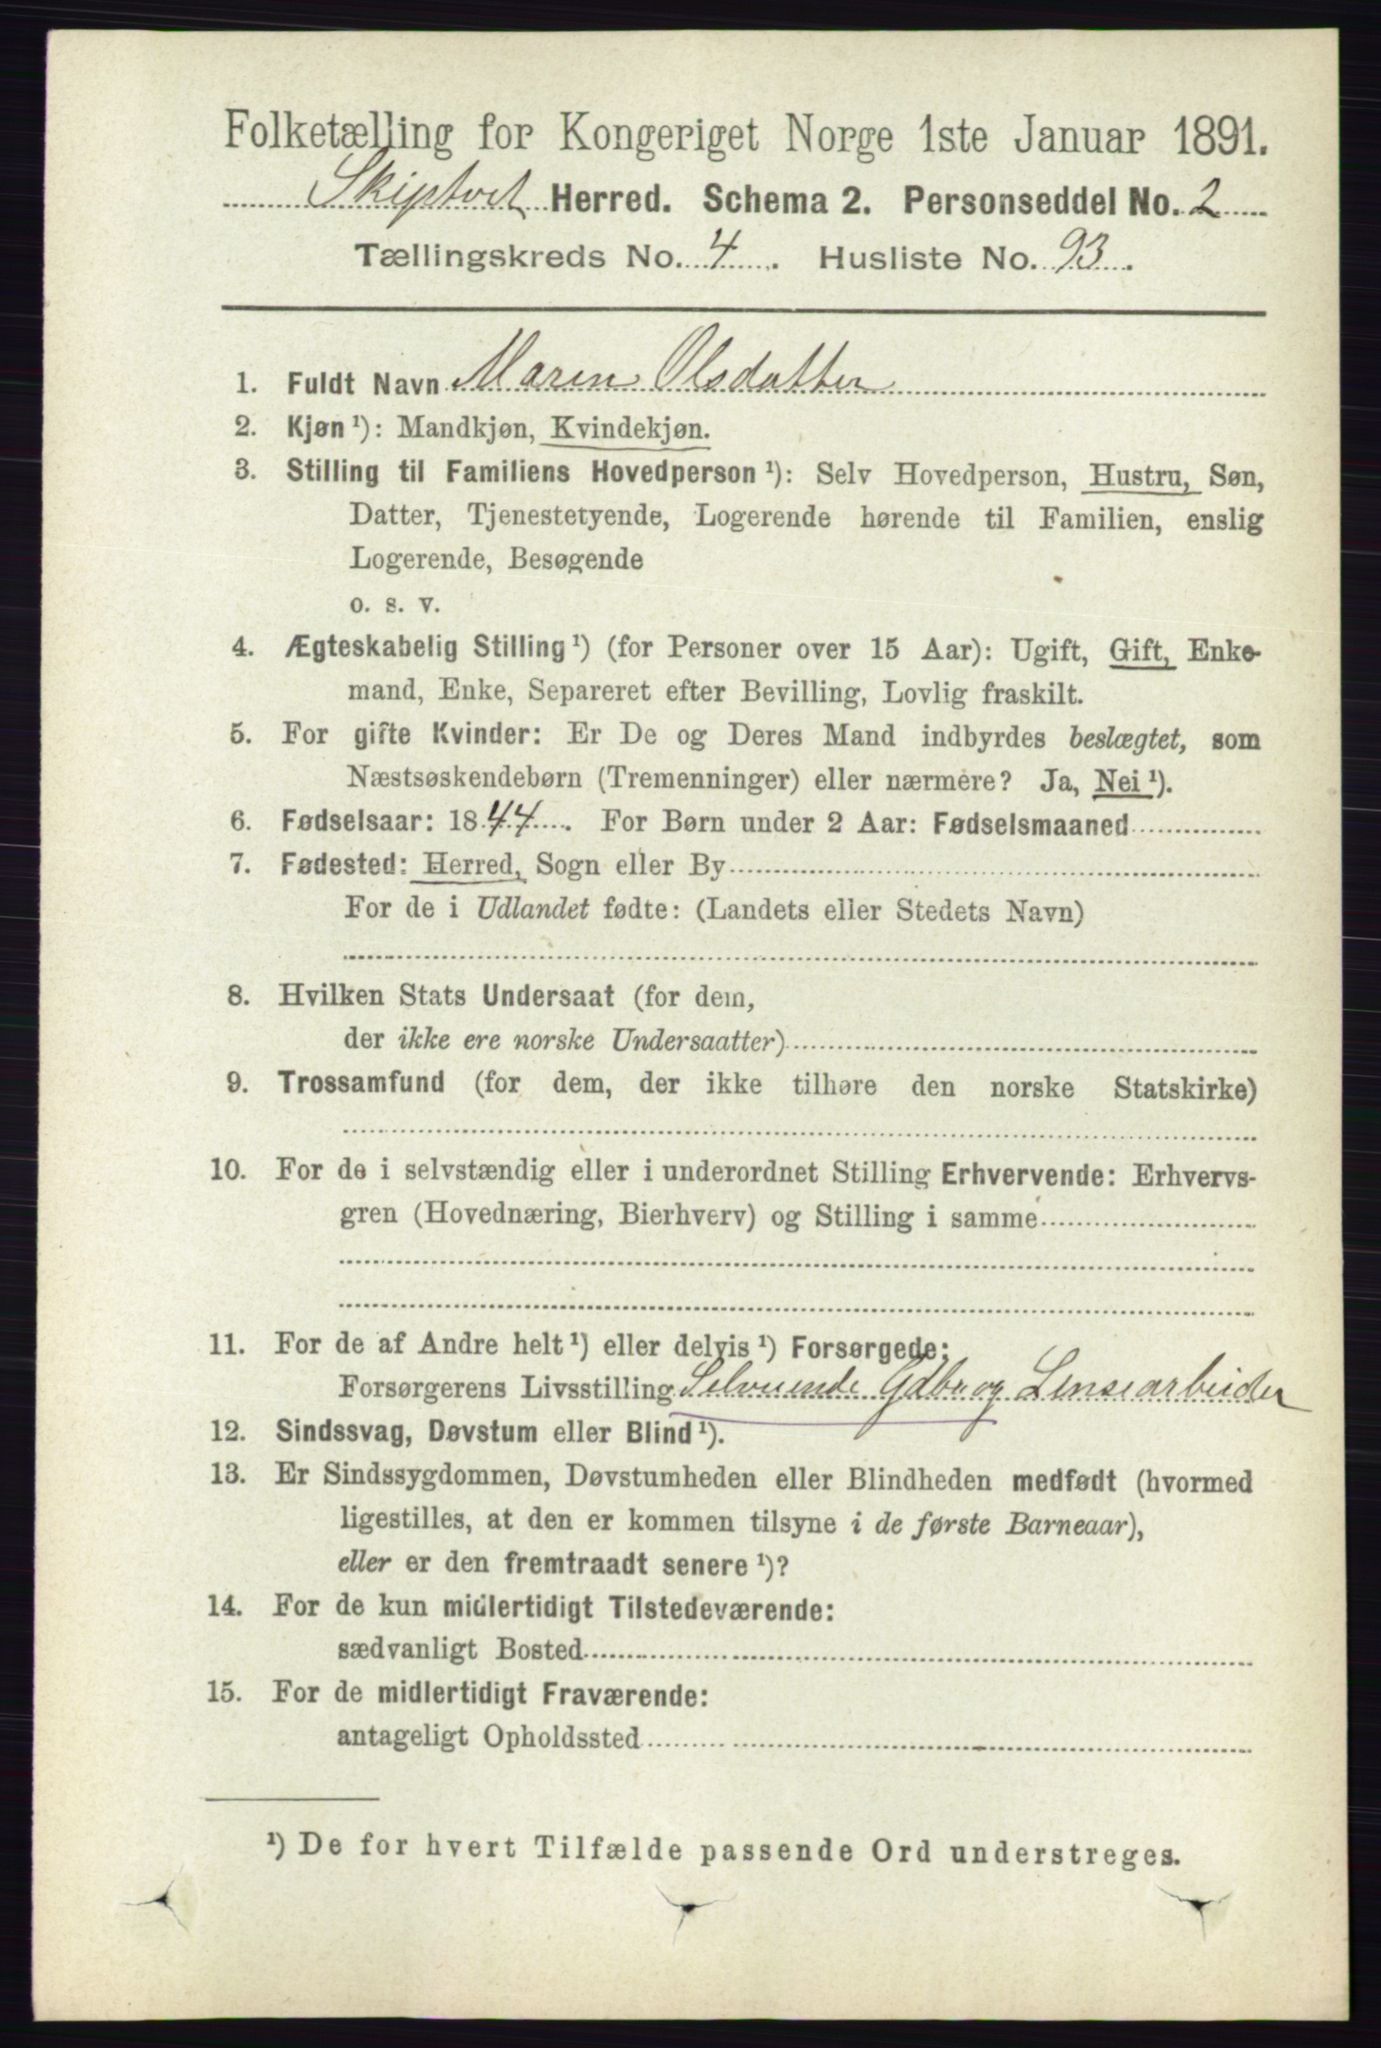 Folketælling for Kongeriget Norge 1ste Januar 1891.
Skiptvet Herred. Schema 2. Personseddel No. 2
Tællingskreds No. 4. Husliste No. 93.
1. Fuldt Navn Maren Olsdatter
2. Kjøn ¹): Mandkjøn, Kvindekjøn.
3. Stilling til Familiens Hovedperson ¹): Selv Hovedperson, Hustru, Søn,
Datter, Tjenestetyende, Logerende hørende til Familien, enslig
Logerende, Besøgende
o. s. v.
4. Ægteskabelig Stilling ¹) (for Personer over 15 Aar): Ugift, Gift, Enke-
mand, Enke, Separeret efter Bevilling, Lovlig fraskilt.
5. For gifte Kvinder: Er De og Deres Mand indbyrdes beslægtet, som
Næstsøskendebørn (Tremenninger) eller nærmere? Ja, Nei ¹).
6. Fødselsaar: 1844. For Børn under 2 Aar: Fødselsmaaned
7. Fødested: Herred, Sogn eller By
For de i Udlandet fødte: (Landets eller Stedets Navn)
8. Hvilken Stats Undersaat (for dem,
der ikke ere norske Undersaatter)
9. Trossamfund (for dem, der ikke tilhøre den norske Statskirke)
10. For de i selvstændig eller i underordnet Stilling Erhvervende: Erhvervs-
gren (Hovednæring, Bierhverv) og Stilling i samme
11. For de af Andre helt ¹) eller delvis ¹) Forsørgede:
Forsørgerens Livsstilling Selveiende Gdbr og Lensearbeider
12. Sindssvag, Døvstum eller Blind ¹).
13. Er Sindssygdommen, Døvstumheden eller Blindheden medfødt (hvormed
ligestilles, at den er kommen tilsyne i de første Barneaar),
eller er den fremtraadt senere ¹)?
14. For de kun midlertidigt Tilstedeværende:
sædvanligt Bosted
15. For de midlertidigt Fraværende:
antageligt Opholdssted
¹) De for hvert Tilfælde passende Ord understreges.